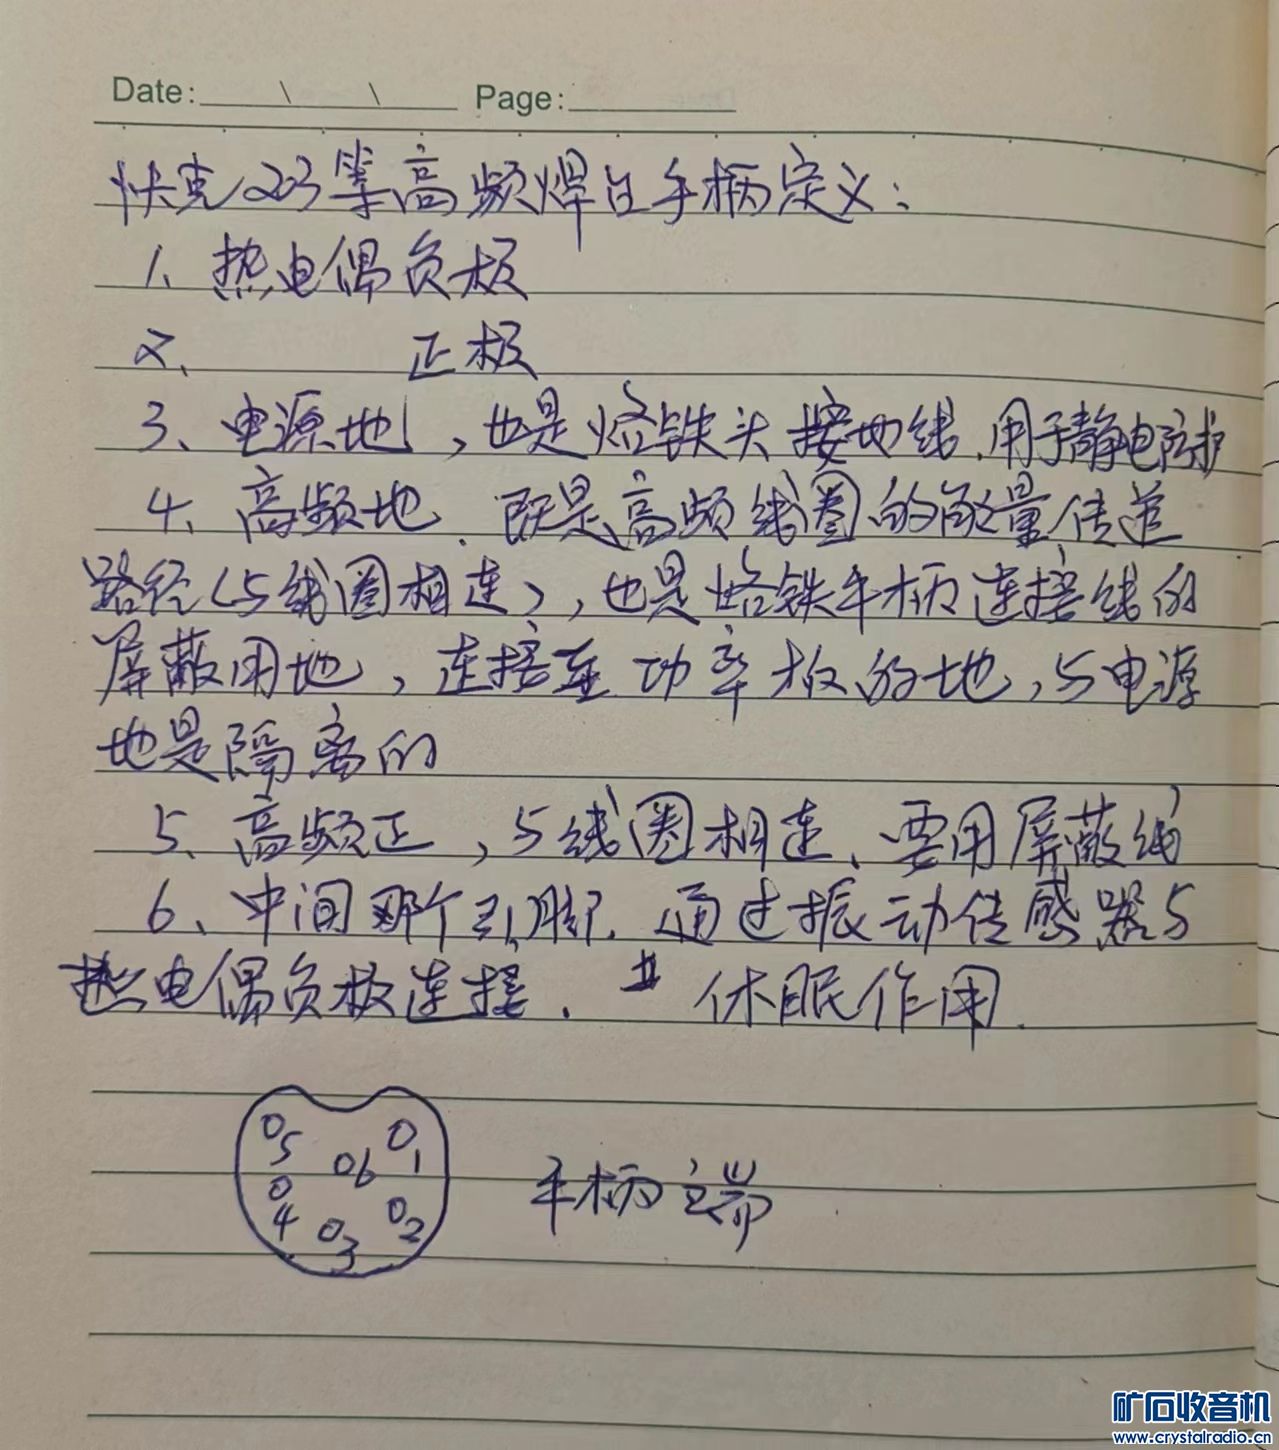 Date: \ \ Page:
快克203等高频焊台手柄定义:
1、热电偶负极
2、 正极
3、电源地,也是烙铁头接地线.用于静电防护
4、高频地.既是高频线圈的能量传递
路径(与线圈相连),也是烙铁手柄连接线的
屏蔽用地,连接至功率板的地,与电源
地是隔离的
5、高频正,与线圈相连、要用屏蔽线
6、中间那个引脚.通过振动传感器与
热电偶负极连接. 休眠作用.
5 1
6
4 2
3
手柄端
矿石收音机
www.crystalradio.cn